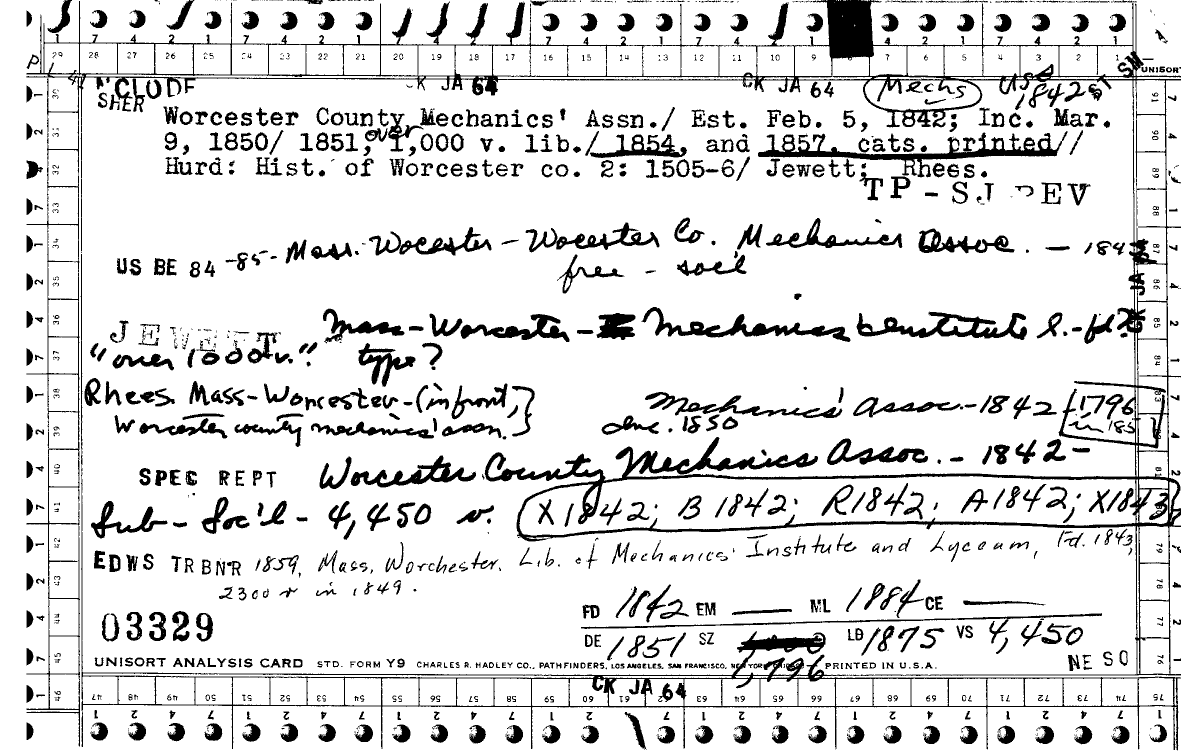 1 7 4 2 1 7 4 2 1 7 4 2 1 7 4 2 1 7 4 2 1 7 4 2 1
29 28 27 26 25 24 23 22 21 20 19 18 17 16 15 14 13 12 11 10 9 7 6 5 4 3 2 1
UNISORT
CLUDE CK JA 64 CK JA 64 Mechs USA 1842 ST SM
SHER
Worcester County Mechanics' Assn./ Est. Feb. 5, 1842; Inc. Mar.
9, 1850/ 1851, over 1,000 v. lib./ 1854, and 1857. cats. printed//
Hurd: Hist. of Worcester co. 2: 1505-6/ Jewett; Rhees.
TP - SJ REV
US BE 84 -85- Mass. Wocester - Wocester Co. Mechanics Assoc. - 184
free - soc'l
CK JA 64
JEWETT Mass - Worcester - Mechanics' Institute l. - fd?
"over 1000 v." type?
Rhees. Mass - Worcester - (in front,
Worcester county mechanics' assn.
Mechanics' Assoc. - 1842 - 1796
inc. 1850 in 185
SPEC REPT Worcester County Mechanics Assoc. - 1842 -
Sub - Soc'l - 4,450 v. X1842; B 1842; R1842; A1842; X1843
EDWS TRBNR 1859, Mass, Worchester. Lib. of Mechanics' Institute and Lyceum, Fd. 1843,
2300 v in 1849.
FD 1842 EM — ML 1884 CE —
03329
DE 1851 SZ 1,796 LB 1875 VS 4,450
UNISORT ANALYSIS CARD STD. FORM Y9 CHARLES R. HADLEY CO., PATHFINDERS, LOS ANGELES, SAN FRANCISCO, NEW YORK PRINTED IN U.S.A.
NE SO
CK JA 64
47 48 49 50 51 52 53 54 55 56 57 58 59 60 61 62 63 64 65 66 67 68 69 70 71 72 73 74 75
1 2 4 7 1 2 4 7 1 2 4 7 1 2 4 7 1 2 4 7 1 2 4 7 1 2 4 7